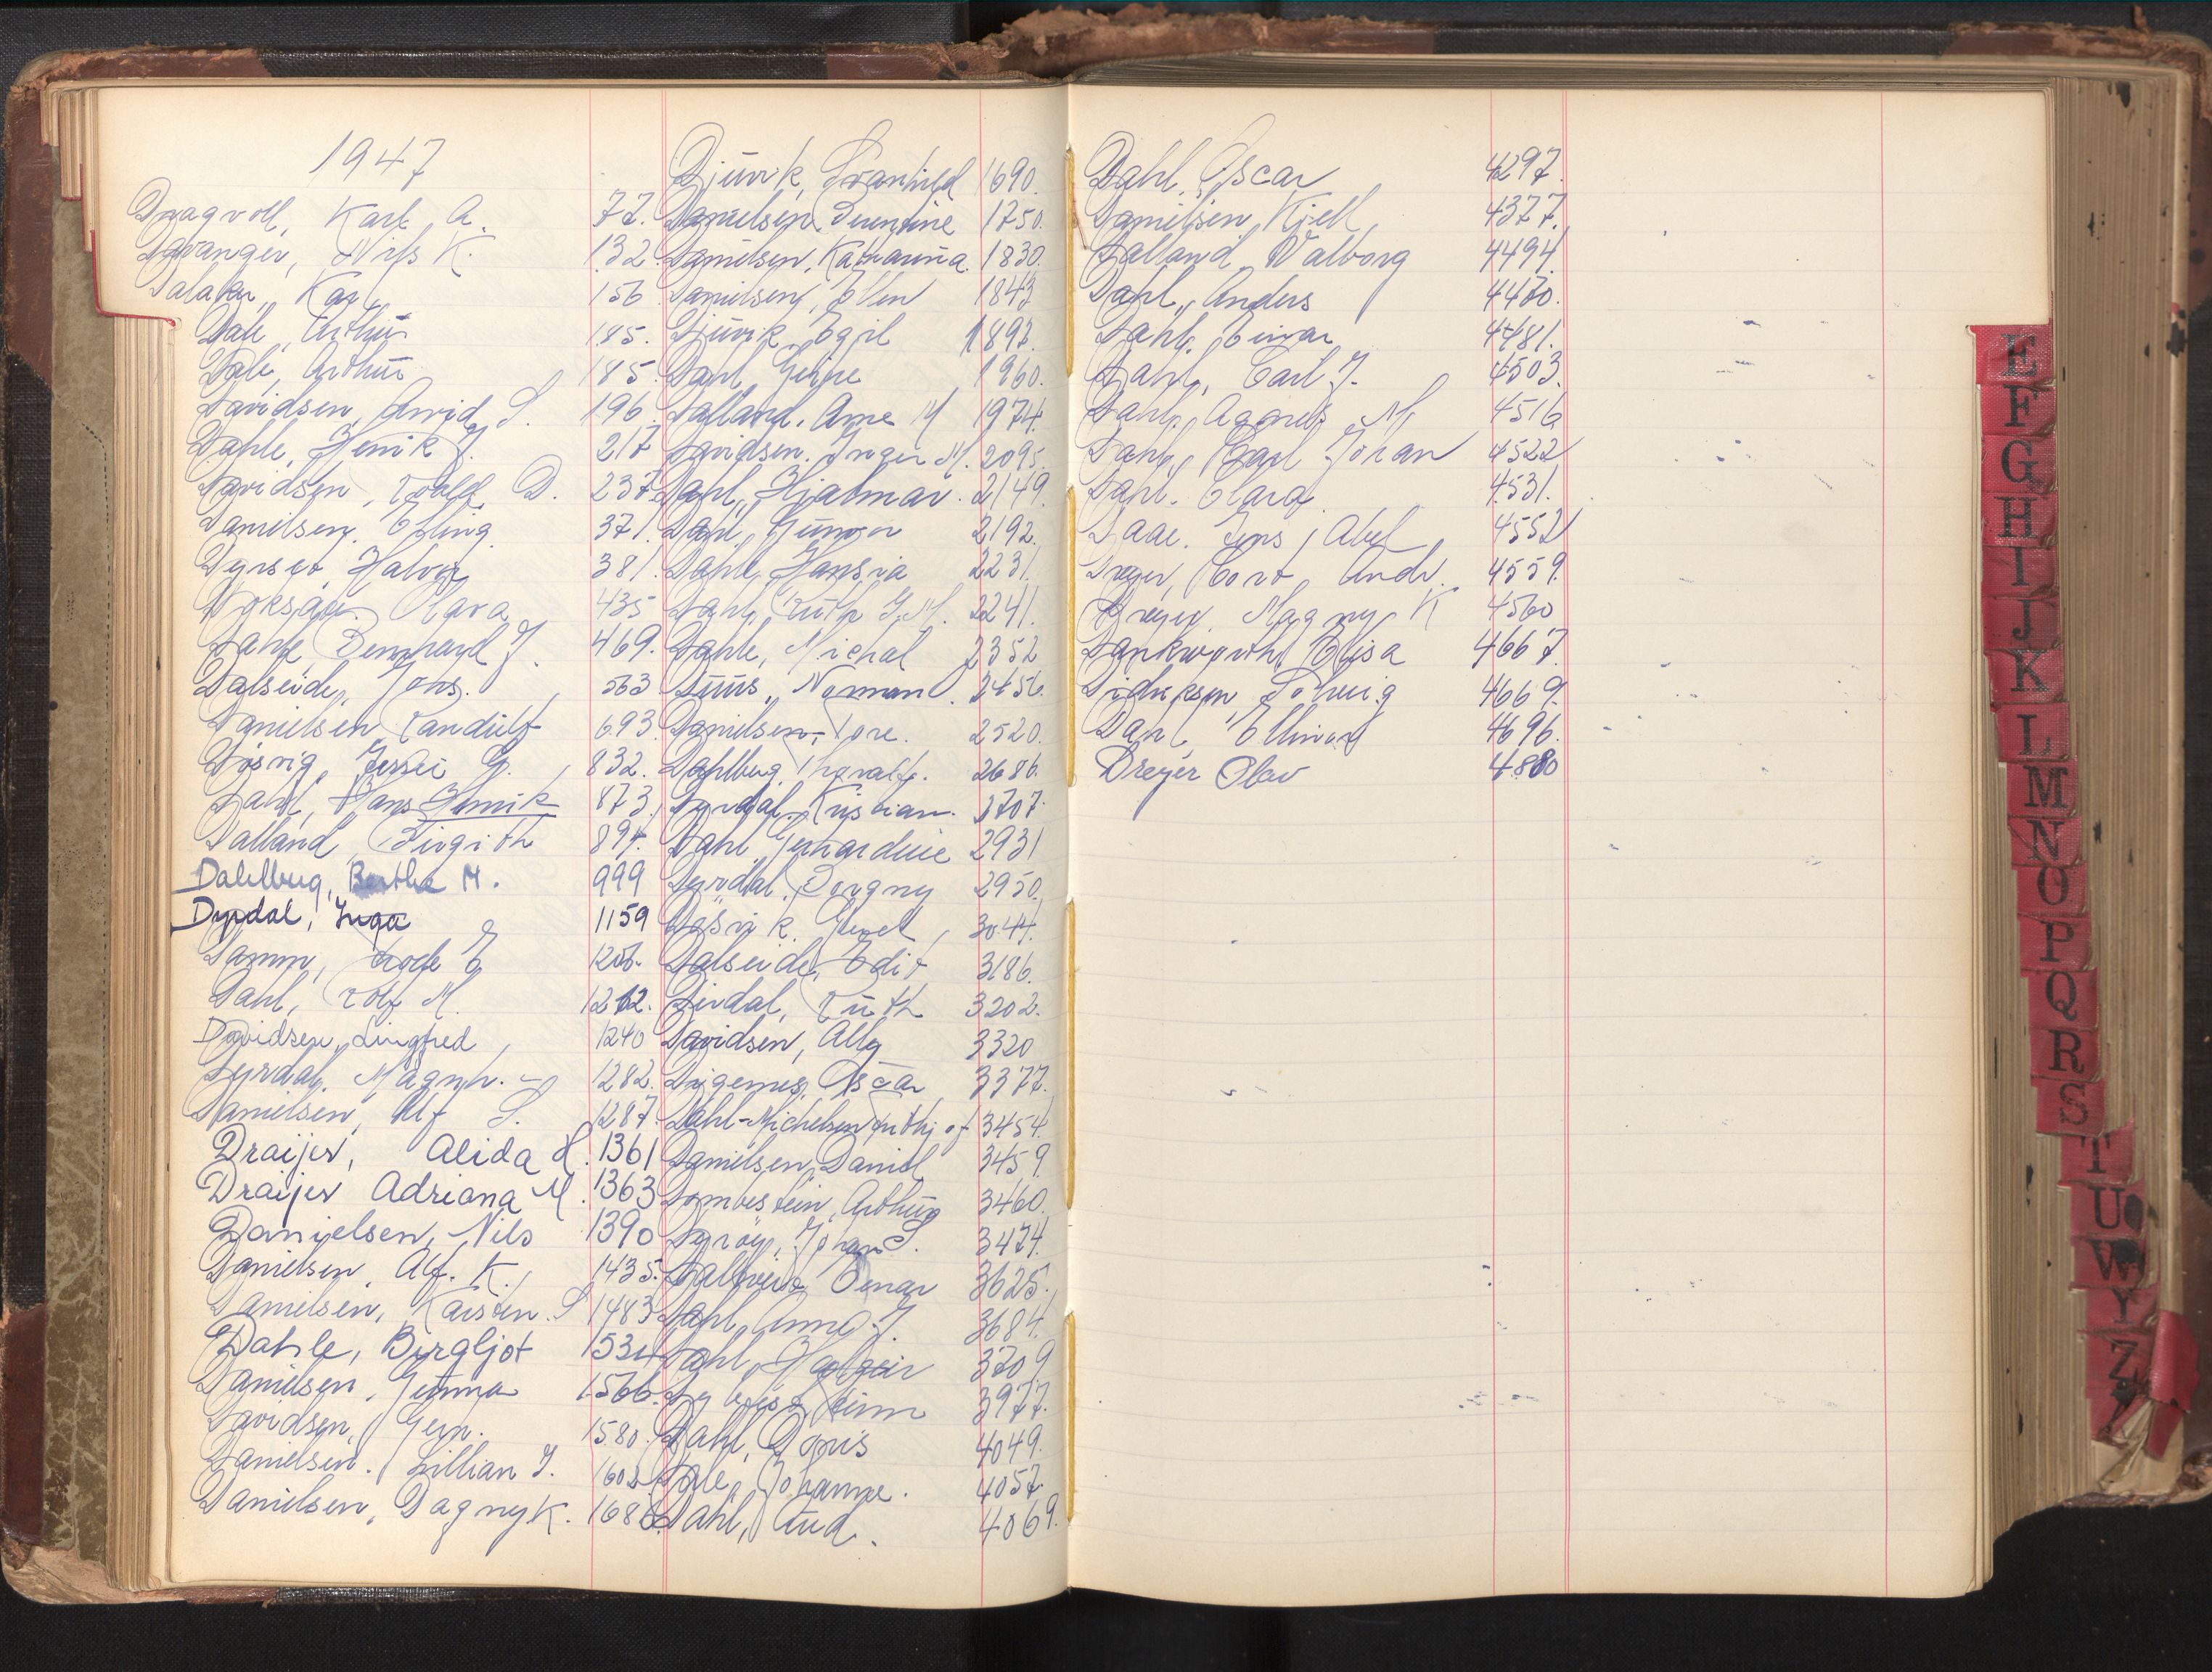 1947
Dragvoll, Karl A. 77.
Davanger, Nils K. 132.
Dalaker, Kaj 156
Dale, Arthur 185.
Dale, Arthur 185.
Davidsen, Arvid S. 196.
Dahle, Henrik J. 217
Davidsen, Rolf D. 237
Danielsen, Erling 371.
Halvor 381.
Clara 435
Dahle Bernhard J. 469.
Dalseide, Johs. 563
Danielsen, Randulf 693.
Døsvig, G. 832.
Dahl, Hans Henrik 873.
Dalland, Birgith 894.
Dahlberg, Berthe M. 999
Dyrdal, Inga 1159
Damm, E 1206.
Dahl, Rolf M. 1212.
Davidsen, Lingfred 1240
Dyrdal, Magnh. 1282.
Danielsen, Alf S. 1287.
Draijer, Alida H. 1361
Draijer Adriana M. 1363
Danielsen, Nils 1390
Danielsen, Alf. K. 1435.
Danielsen, Karsten. S 1483
Dahle, Bergljot 1534
Danielsen, Gunna 1566.
Davidsen, Geir. 1580.
Danielsen. Lillian J. 1602
Danielsen, Dagny K. 1686.
Djuvik, Svanhild 1690.
Danielsen 1750.
Danielsen, Katharina. 1830.
Danielsen, Ellen 1843
Djuvik, Egil 1892.
Dahl 1960.
Dalland, Arne M 1974.
Davidsen. Inger M. 2095.
Dahl, Hjalmar. 2149.
Dahl, Gunvor 2192.
Dahl, Hansia 2231.
Dahl, Ruth J.M. 2241.
Dahle, Michal 2352
Duus, Norman. 2456.
Danielsen, Tore. 2520.
Dahlberg, Thoralf. 2686.
Dyrdal, Kristian. 2707.
Dahl Gerhardine 2931
Dyrdal, Dagny 2950.
Døsvik. 3044.
Dalseide, Edit 3186.
Dirdal, Ruth 3202.
Davidsen, Ally 3320
Digernes, Oscar 3377.
Dahl-Michelsen Fridthjof 3454.
Danielsen, Daniel 3459.
Dombestein, Arthur 3460.
Dyrøy, Johan S. 3474.
Einar 3625.
Dahl, Anna J. 3684.
Dahl, Holgeir 3709
Finn 3977.
Dahl, Doris 4049.
Dale, Johanne. 4057.
Dahl, Aud. 4069.
Dahl, Oscar 4297.
Danielsen, Kjell, 4377.
Dalland, Valborg 4494.
Dahl, Anders 4470.
Dahl, Einar 4481.
Dahl, Carl J. 4503.
Dahl, Agnes M. 4516
Dahl, Carl Johan 4522
Dahl. Clara 4531.
Daae. Jens Abel 4552
Dreyer, Andr. 4559.
Dreyer. Magny K 4560
Dankwarth Elisa 4667.
Didriksen, Solveig 4669.
Dahl, Ellinor 4696.
Dreyer Olav 4880
E
F
G
H
I
J
K
L
M
N
O
P
Q
R
S
T
U
W
Y
Z